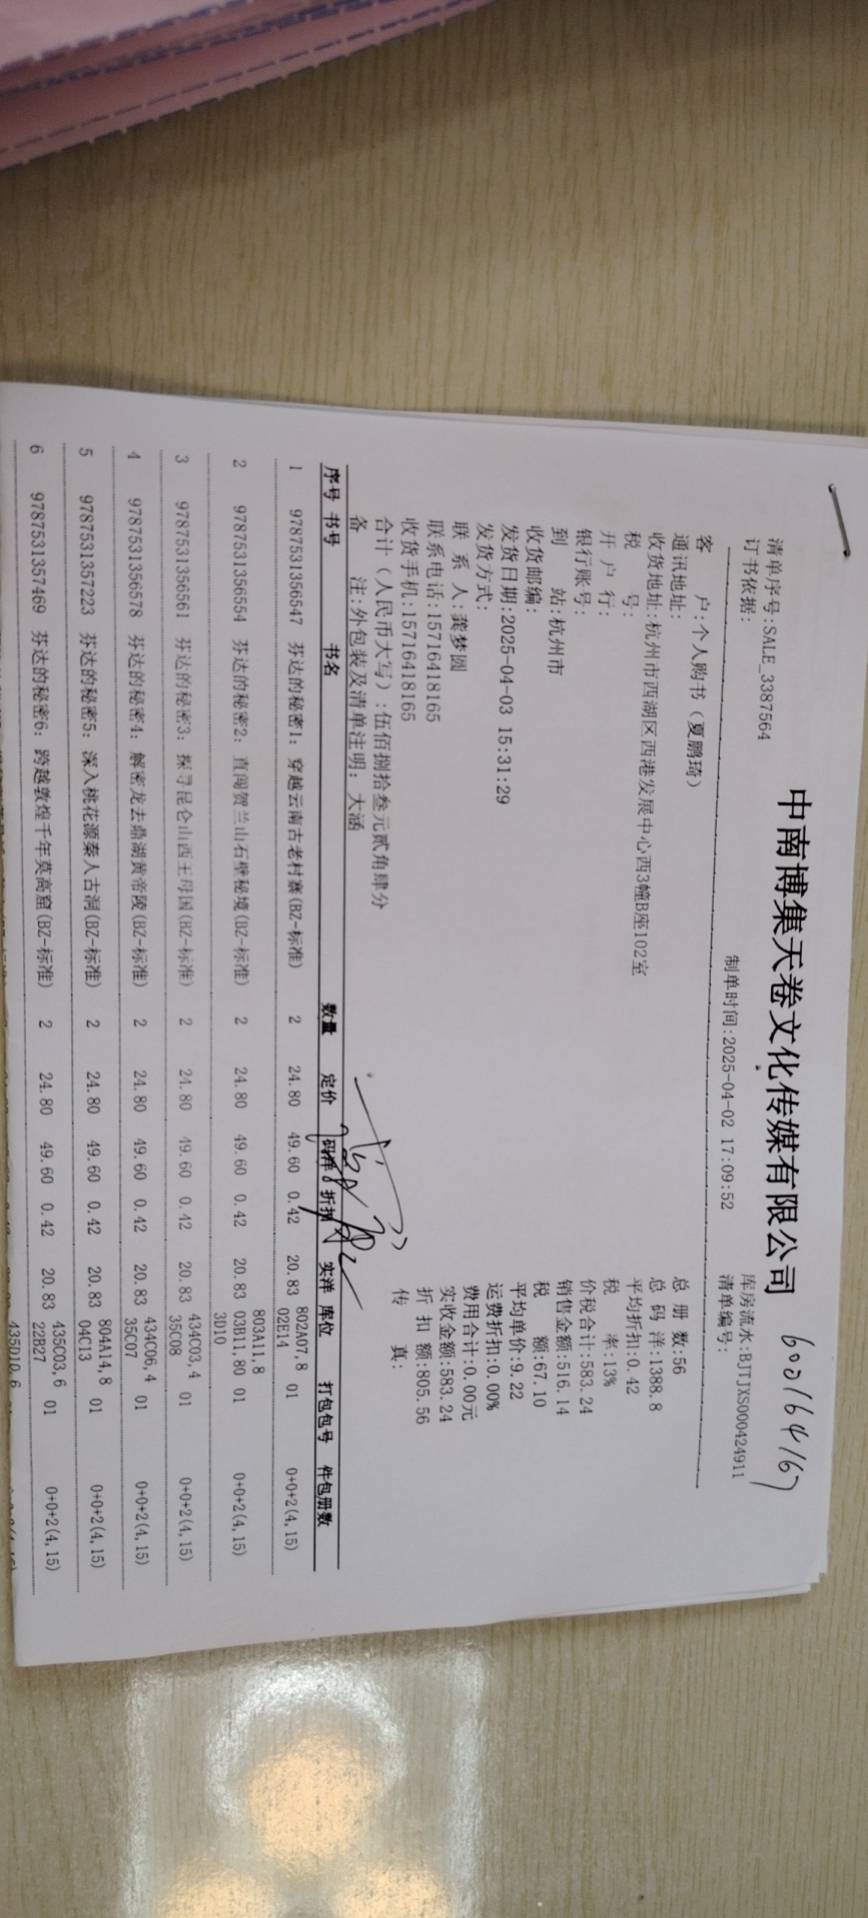 中南博集天卷文化传媒有限公司
60016416
清单序号:SALE_3387564 制单时间:2025-04-02 17:09:52 库房流水:BJTJXS000424911
订书依据: 清单编号:
客 户:个人购书(夏鹏琦) 总 册 数:56
通讯地址: 总 码 洋:1388.8
收货地址:杭州市西湖区西港发展中心西3幢B座102室 平均折扣:0.42
税 号: 税 率:13%
开 户 行: 价税合计:583.24
银行账号: 销售金额:516.14
到 站:杭州市 税 额:67.10
收货邮编: 平均单价:9.22
发货日期:2025-04-03 15:31:29 运费折扣:0.00%
发货方式: 费用合计:0.00元
联 系 人:龚梦圆 实收金额:583.24
联系电话:15716418165 折 扣 额:805.56
收货手机:15716418165 传 真:
合计(人民币大写):伍佰捌拾叁元贰角肆分
备 注:外包装及清单注明: 大涵
序号 书号 书名 数量 定价 码洋 折扣 实洋 库位 打包包号 件包册数
1 9787531356547 芬达的秘密1: 穿越云南古老村寨(BZ-标准) 2 24.80 49.60 0.42 20.83 802A07,8 01 0+0+2(4,15)
02E14
2 9787531356554 芬达的秘密2: 直闯贺兰山石壁秘境(BZ-标准) 2 24.80 49.60 0.42 20.83 803A11,8
03B11,80 01 0+0+2(4,15)
3D10
3 9787531356561 芬达的秘密3: 探寻昆仑山西王母国(BZ-标准) 2 24.80 49.60 0.42 20.83 434C03,4 01 0+0+2(4,15)
35C08
4 9787531356578 芬达的秘密4: 解密龙去鼎湖黄帝陵(BZ-标准) 2 24.80 49.60 0.42 20.83 434C06,4 01 0+0+2(4,15)
35C07
5 9787531357223 芬达的秘密5: 深入桃花源秦人古洞(BZ-标准) 2 24.80 49.60 0.42 20.83 804A14,8 01 0+0+2(4,15)
04C13
6 9787531357469 芬达的秘密6: 跨越敦煌千年莫高窟(BZ-标准) 2 24.80 49.60 0.42 20.83 435C03,6 01 0+0+2(4,15)
22B27
435D10,6